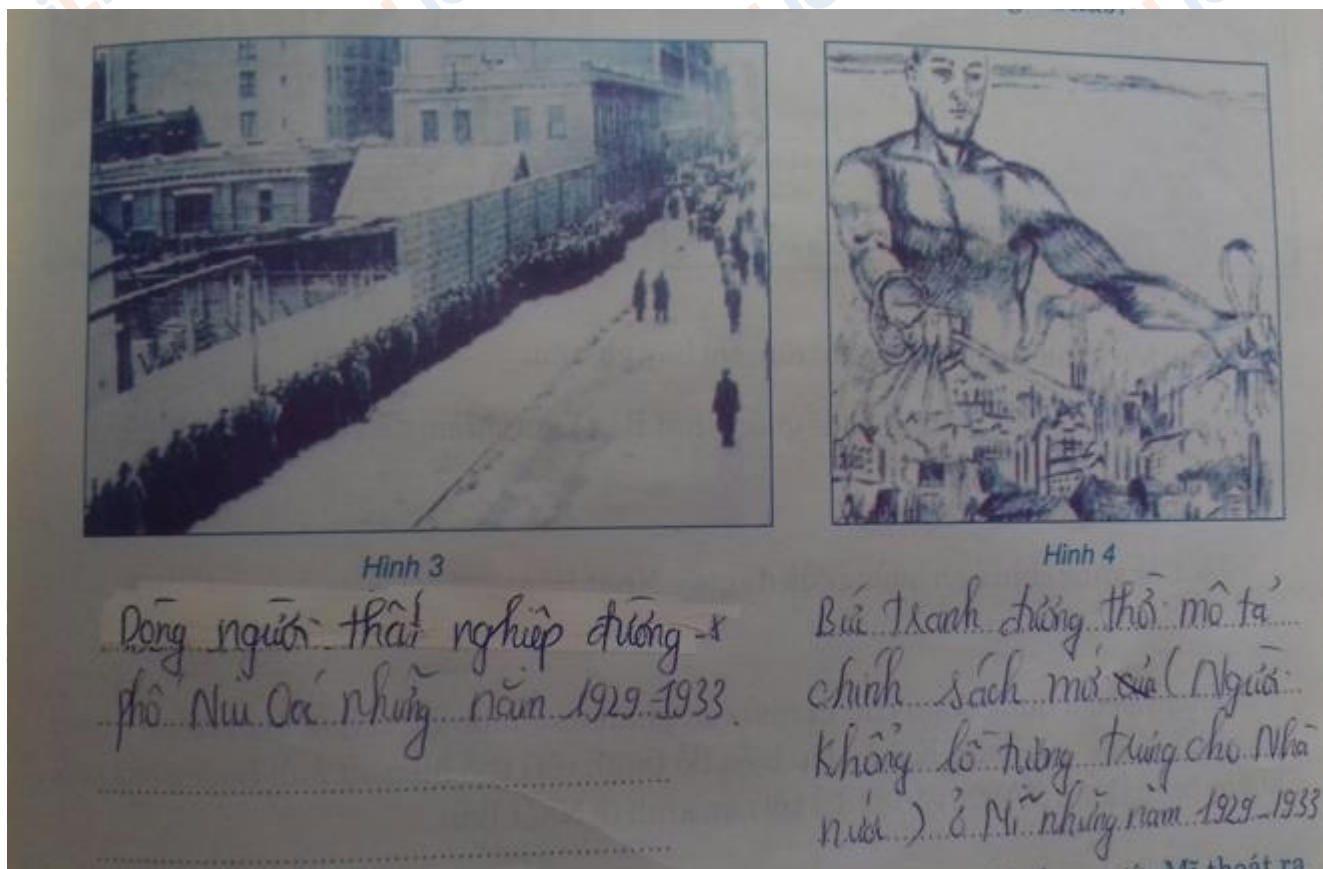 Hình 3
Hình 4
Dòng người thất nghiệp đường
phố Niu Oóc những năm 1929-1933.
Bức tranh đương thời mô tả
chính sách mới (Người
khổng lồ tượng trưng cho Nhà
nước) ở Mĩ những năm 1929-1933
Mĩ thoát ra